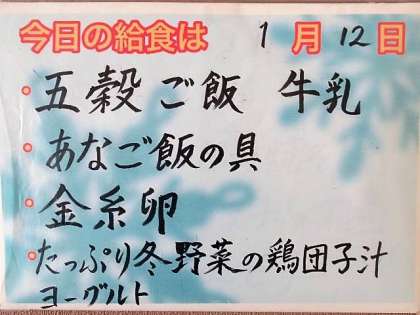 今日の給食は 1月12日
・五穀ご飯 牛乳
・あなご飯の具
・金糸卵
・たっぷり冬野菜の鶏団子汁
ヨーグルト